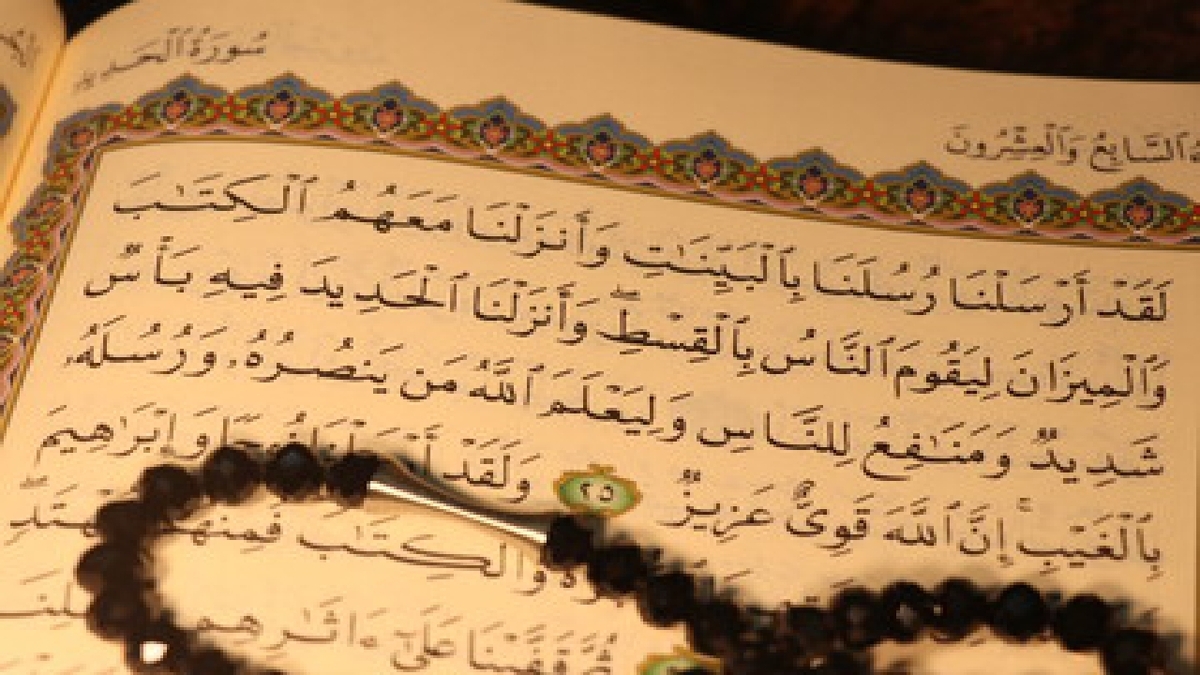 سُورَةُ ٱلْحَدِيدِ
ٱلسَّابِعُ وَٱلْعِشْرُونَ
لَقَدْ أَرْسَلْنَا رُسُلَنَا بِٱلْبَيِّنَٰتِ وَأَنزَلْنَا مَعَهُمُ ٱلْكِتَٰبَ
وَٱلْمِيزَانَ لِيَقُومَ ٱلنَّاسُ بِٱلْقِسْطِۖ وَأَنزَلْنَا ٱلْحَدِيدَ فِيهِ بَأْسٌ
شَدِيدٌ وَمَنَٰفِعُ لِلنَّاسِ وَلِيَعْلَمَ ٱللَّهُ مَن يَنصُرُهُۥ وَرُسُلَهُۥ
بِٱلْغَيْبِۚ إِنَّ ٱللَّهَ قَوِىٌّ عَزِيزٌ ٢٥ وَلَقَدْ وَإِبْرَٰهِيمَ
وَٱلْكِتَٰبَ فَمِنْهُم
ثُمَّ قَفَّيْنَا عَلَىٰٓ ءَاثَٰرِهِم